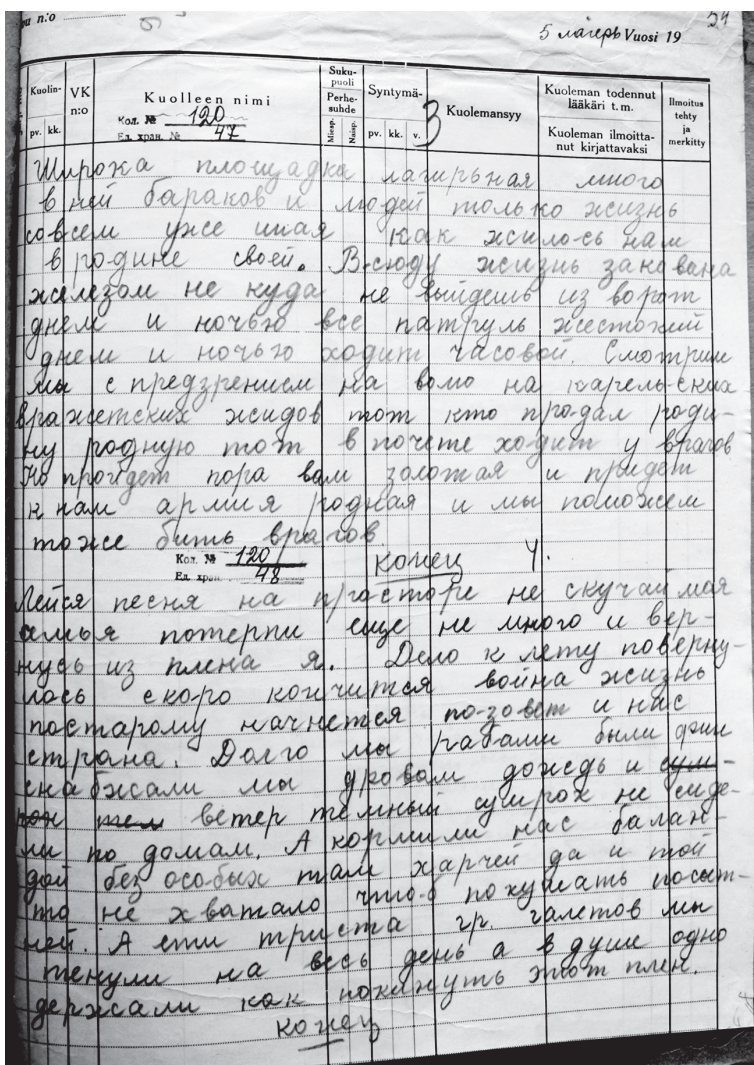 n:o
5 лагерь Vuosi 19
54
Kuolin-
pv. kk.
VK
n:o
Kuolleen nimi
Кол. № 120
Ед. хран. № 47
Suku-
puoli
Perhe-
suhde
Miesp.
Naisp.
Syntymä-
pv. kk. v.
3
Kuolemansyy
Kuoleman todennut
lääkäri t.m.
Kuoleman ilmoitta-
nut kirjattavaksi
Ilmoitus
tehty
ja
merkitty
Широка площадка лагирьная много
в ней бараков и людей только жизнь
совсем уже иная как жилось нам
в родине своей. В-сюду жизнь закована
железом не куда не выйдешь из ворот
днем и ночью все патруль жестокий
днем и ночью ходит часовой. Смотрим
мы с предзрением на вомо на карель-ских
вражетских жидов тот кто про-дал роди-
ну родную тот в почете ходит у врагов
Но пройдет пора вам золотая и придет
к нам армия родная и мы поможем
тоже бить врагов.
Кол. № 120
Ед. хран. 48
конец 4.
Лейся песня на просторе не скучай моя
семья потерпи еще не много и вер-
нусь из плена я. Дело к лету поверну-
лось скоро кончится война жизнь
постарому начнется по-зовет и нас
страна. Долго мы рабами были фин
снабжали мы дровам дождь и сум-
рок тем ветер темный сумрок не сиде-
ли по домам. А кормили нас балан-
дой без особых там харчей да и той
то не хватало чтоб покушать посыт-
ней. А ети триста гр. галетов мы
тенули на весь день а в душе одно
держали как покинуть этот плен.
конец